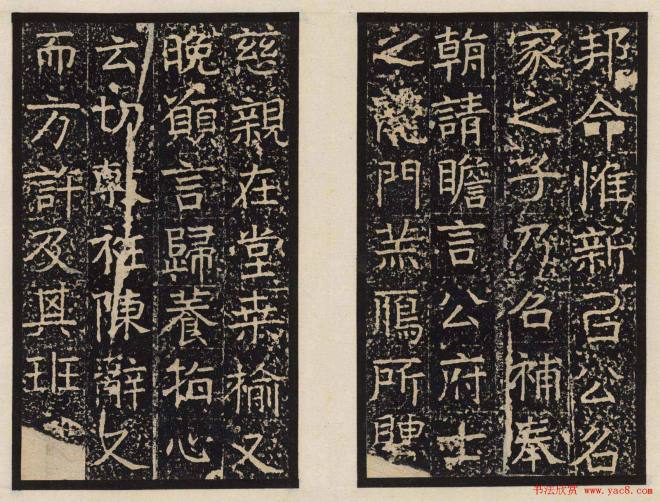 邦命惟新召公名
家之子乃名補奉
朝請瞻言公府士
之龍門羔鴈所
慈親在堂桒榆又
晚顧言歸養指心
云切牀祛陳辭
而方許及其班
书法欣赏 www.yac8.com